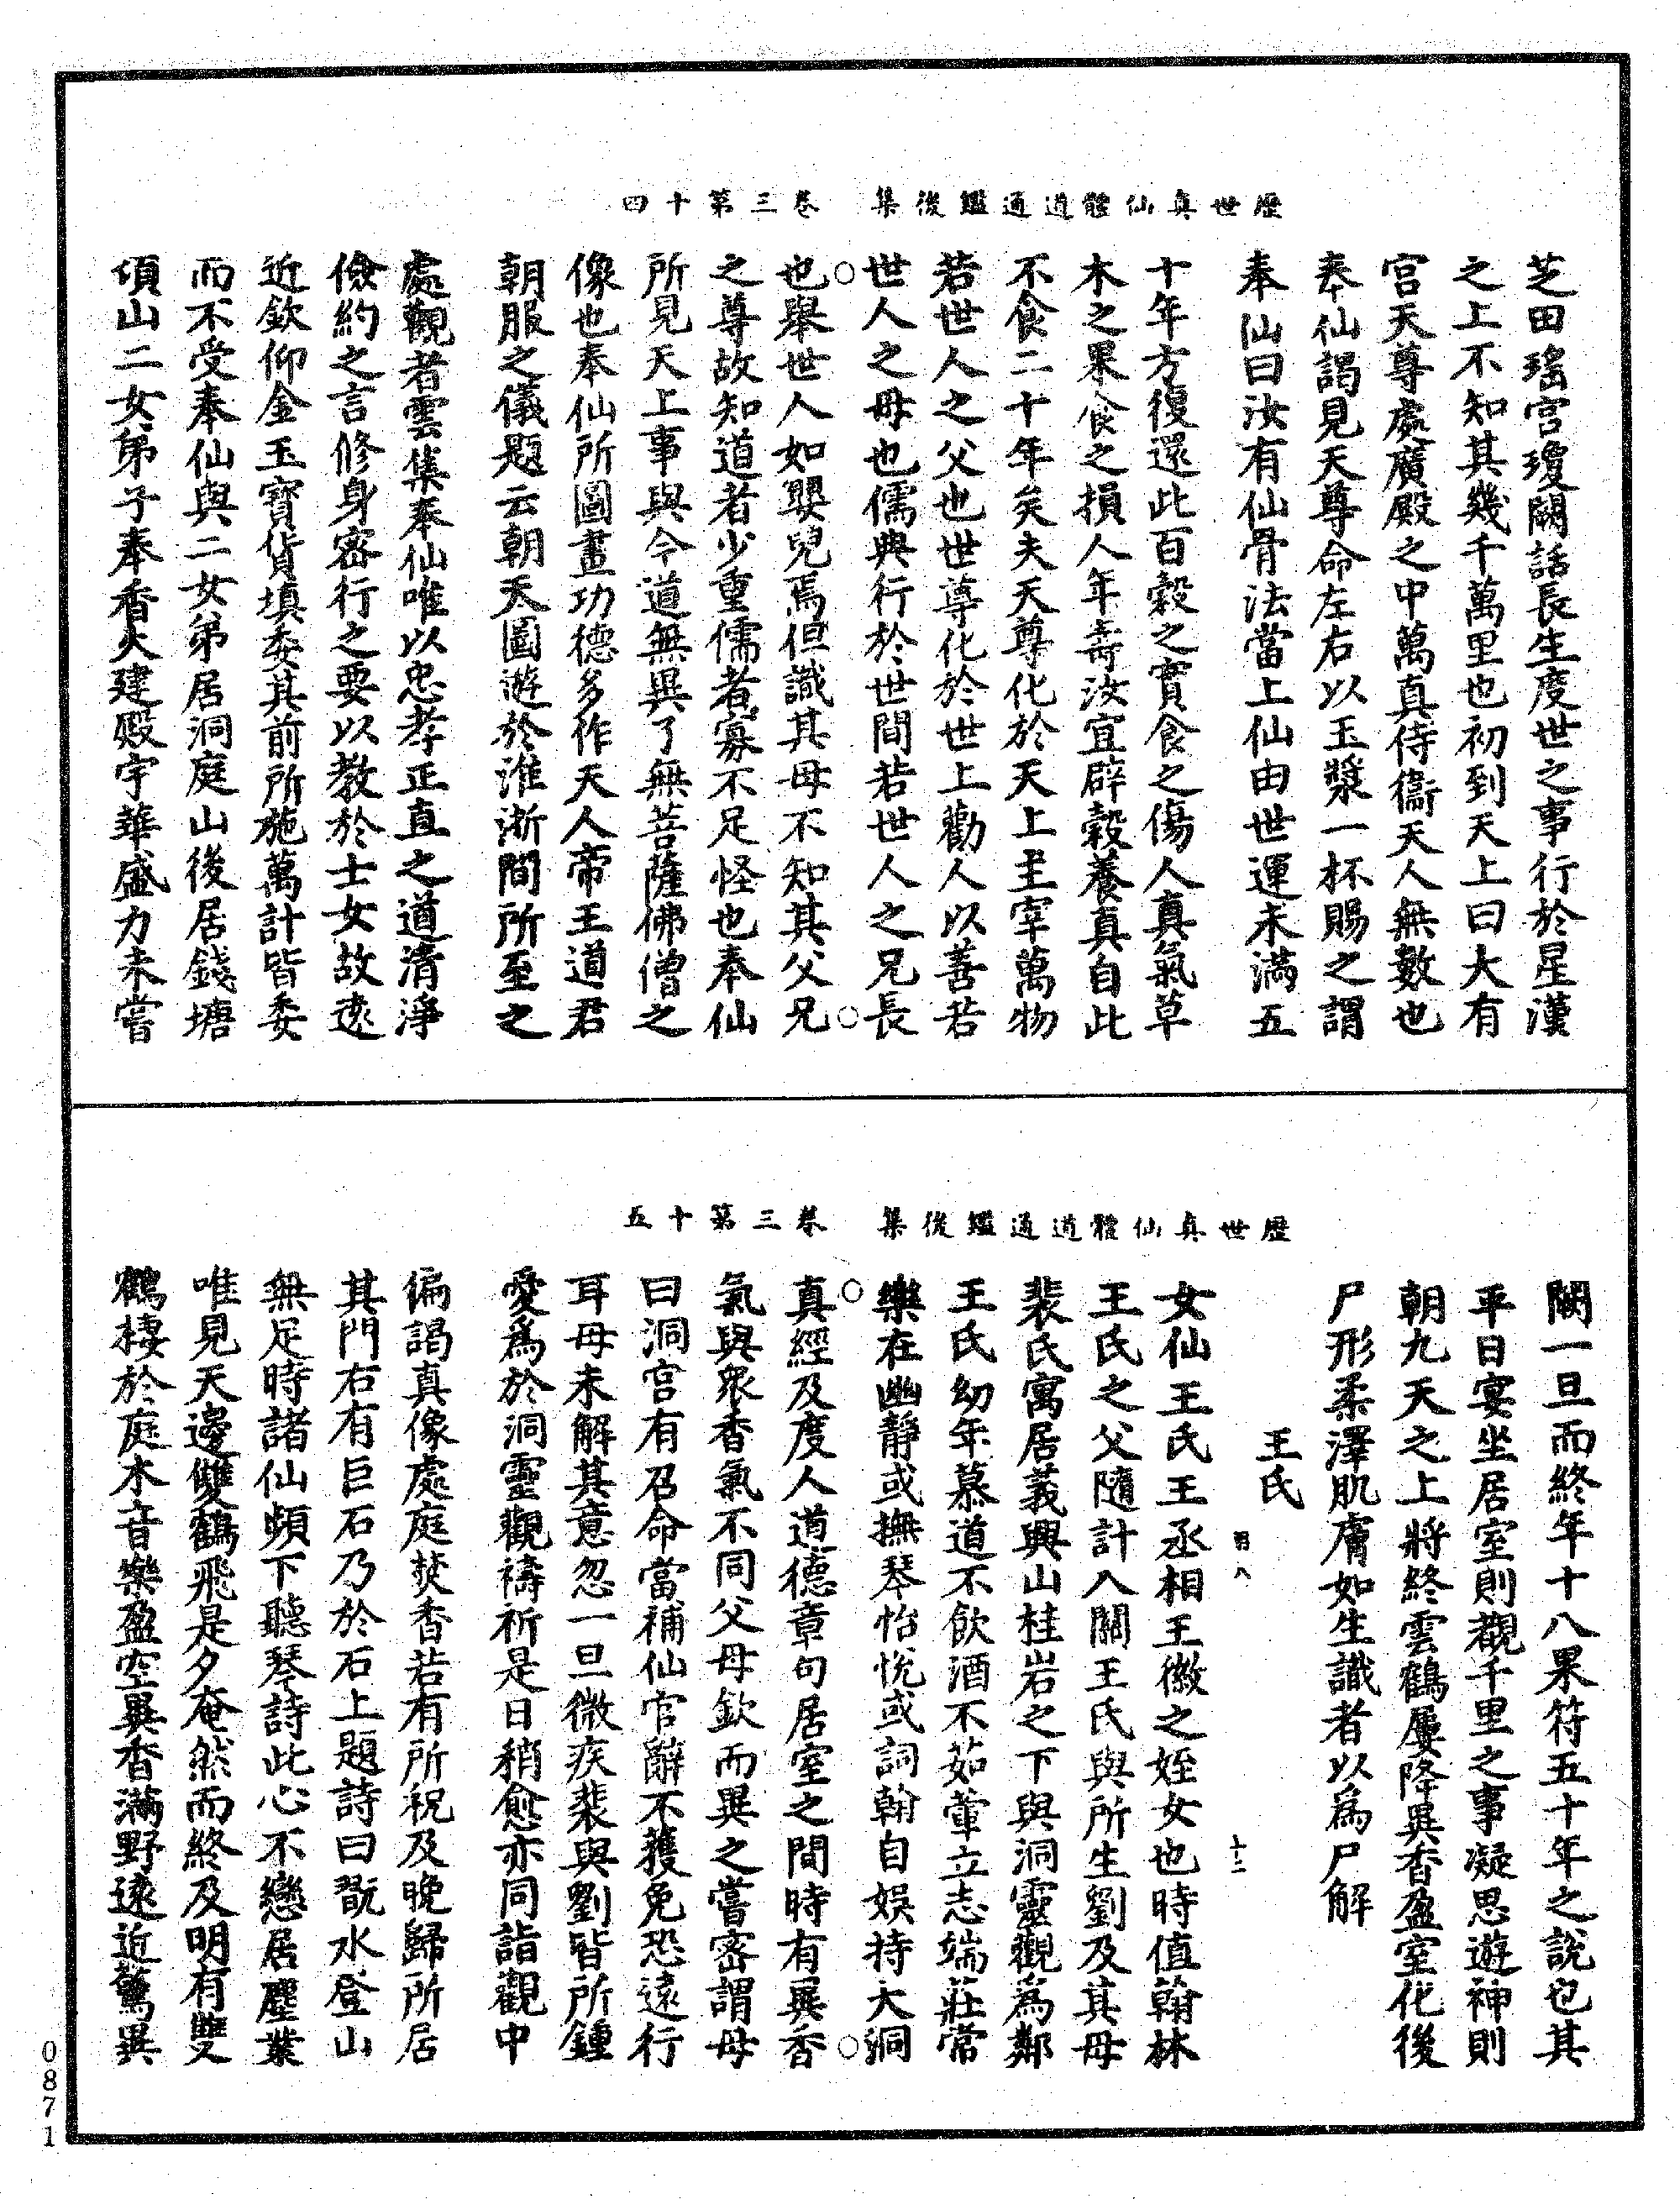 歷世真仙體道通鑑後集　卷三第十四
芝田瑤宮瓊闕話長生度世之事行於星漢
之上不知其幾千萬里也初到天上曰大有
宮天尊處廣殿之中萬真侍衛天人無數也
奉仙謁見天尊命左右以玉漿一杯賜之謂
奉仙曰汝有仙骨法當上仙由世運未滿五
十年方復還此百穀之實食之傷人真氣草
木之果食之損人年壽汝宜辟穀養真自此
不食二十年矣夫天尊化於天上主宰萬物
若世人之父也世尊化於世上勸人以善若
世人之母也儒典行於世間若世人之兄長
也舉世人如嬰兒焉但識其母不知其父兄
之尊故知道者少重儒者寡不足怪也奉仙
所見天上事與今道無異了無菩薩佛僧之
像也奉仙所圖畫功德多作天人帝王道君
朝服之儀題云朝天圖遊於淮浙間所至之
處觀者雲集奉仙唯以忠孝正直之道清淨
儉約之言修身密行之要以教於士女故遠
近欽仰金玉寶貨填委其前所施萬計皆委
而不受奉仙與二女弟居洞庭山後居錢塘
頂山二女弟子奉香火建殿宇華盛力未嘗
歷世真仙體道通鑑後集　卷三第十五
闕一旦而終年十八果符五十年之說也其
平日宴坐居室則觀千里之事凝思遊神則
朝九天之上將終雲鶴屢降異香盈室化後
尸形柔澤肌膚如生識者以為尸解
王氏　八　十二
女仙王氏王丞相王徽之姪女也時值翰林
王氏之父隨計入關王氏與所生劉及其母
裴氏寓居義興山桂岩之下與洞靈觀為鄰
王氏幼年慕道不飲酒不茹葷立志端莊常
樂在幽靜或撫琴怡悅或詞翰自娛持大洞
真經及度人道德章句居室之間時有異香
氣與衆香氣不同父母欽而異之嘗密謂母
曰洞宮有召命當補仙官辭不獲免恐遠行
耳母未解其意忽一旦微疾裴與劉皆所鍾
愛為於洞靈觀禱祈是日稍愈亦同詣觀中
偏謁真像處庭焚香若有所祝及晚歸所居
其門右有巨石乃於石上題詩曰翫水登山
無足時諸仙頻下聽琴詩此心不戀居塵業
唯見天邊雙鶴飛是夕奄然而終及明有雙
鶴棲於庭木音樂盈空異香滿野遠近驚異
0871